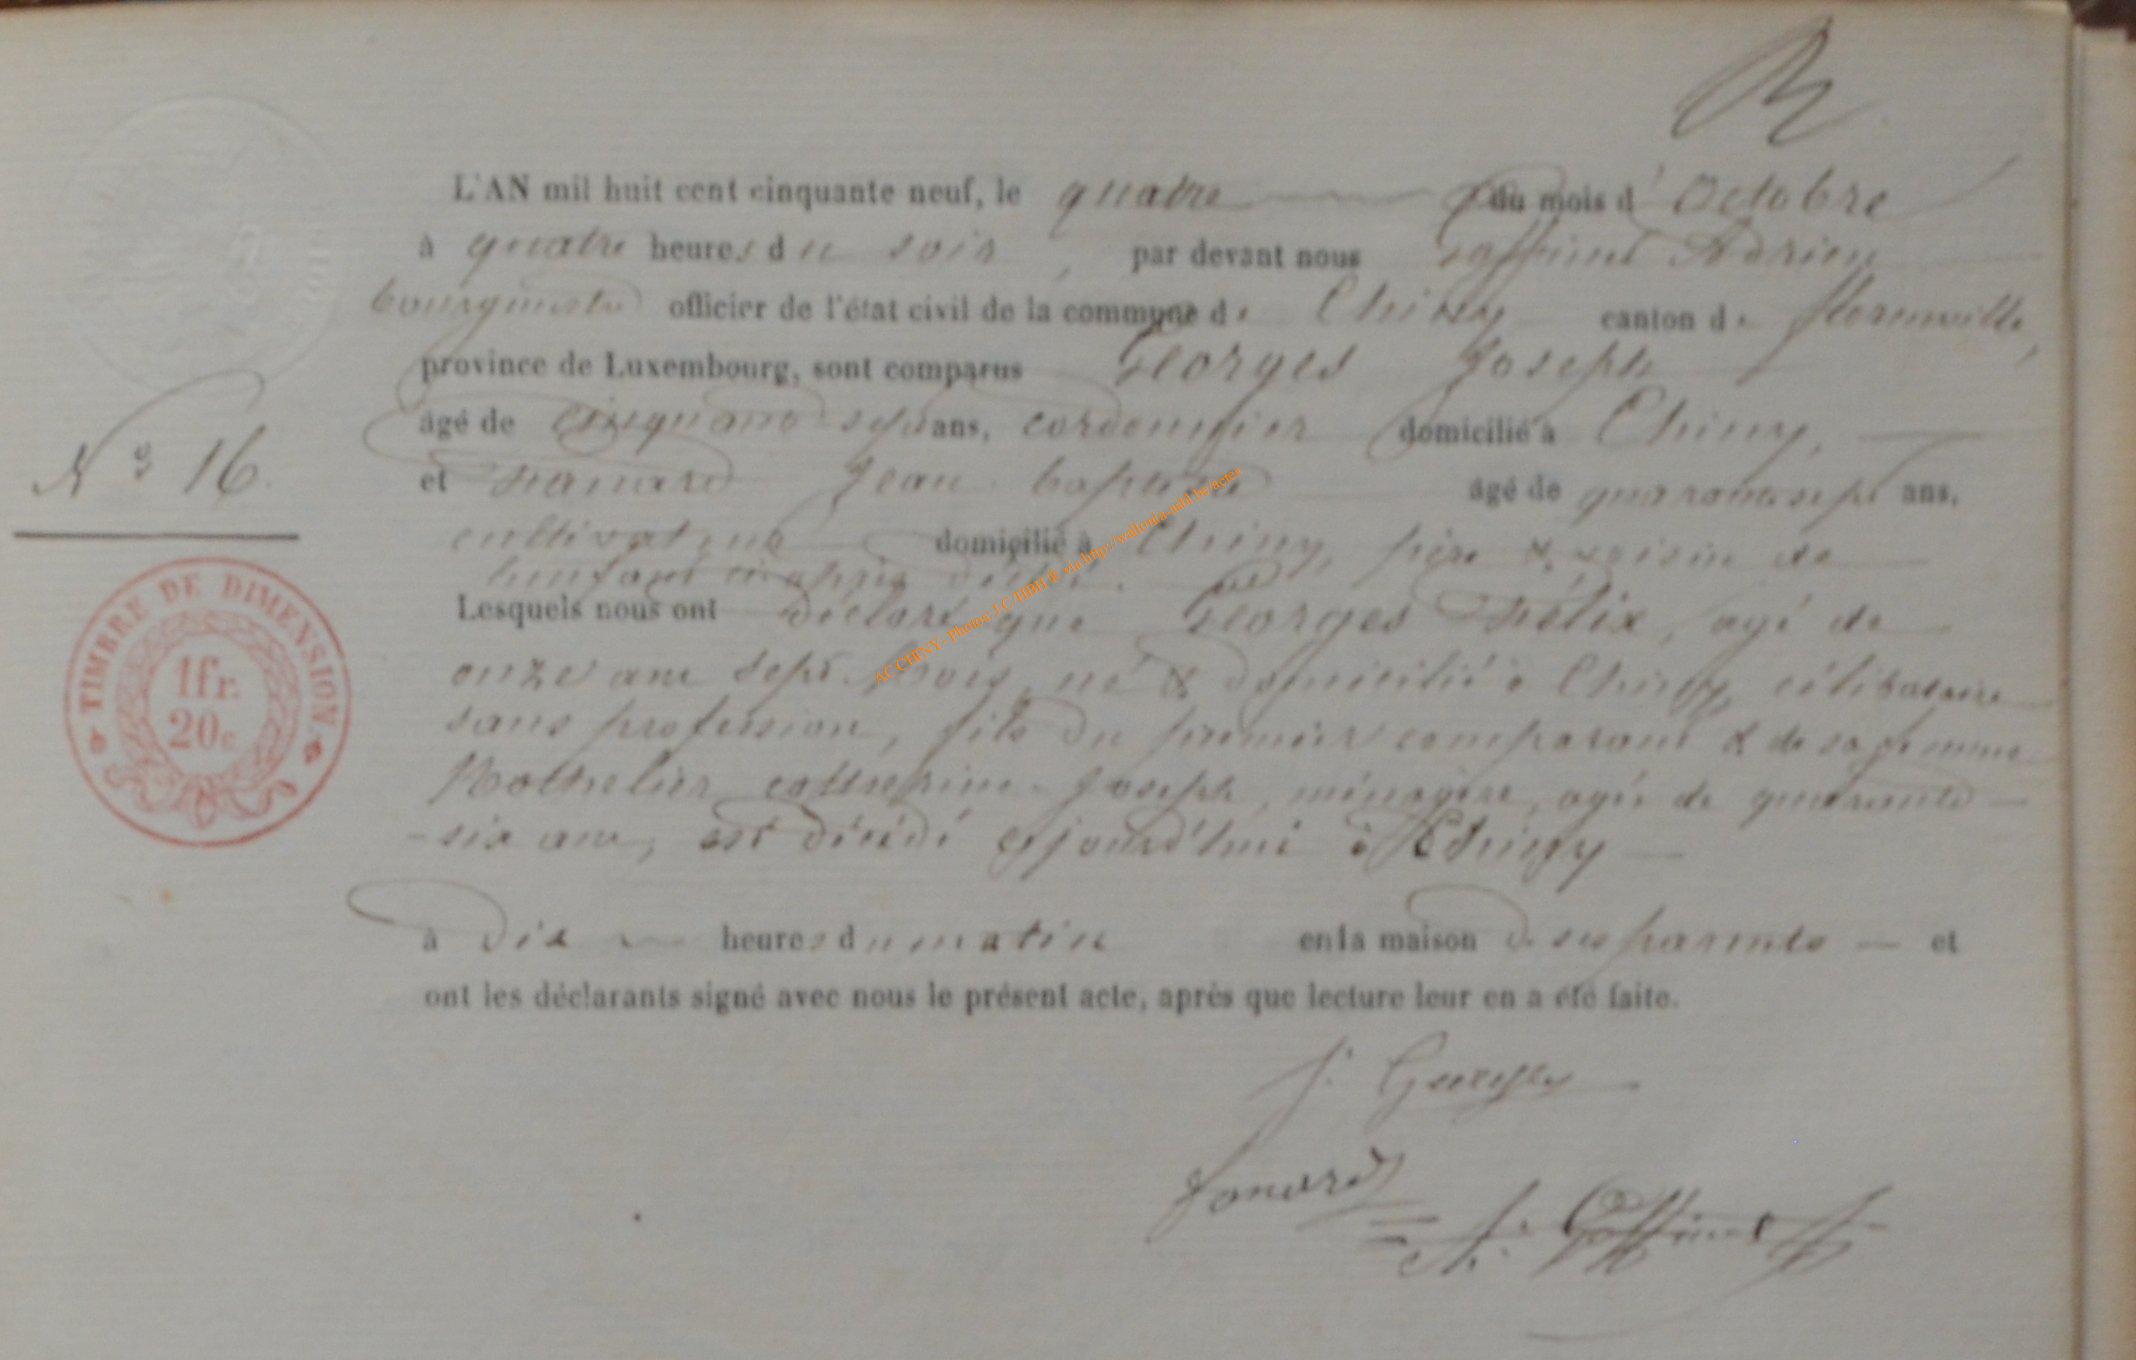 L'AN mil huit cent cinquante neuf, le quatre du mois d'Octobre
à quatre heures du soir, par devant nous Goffinet Adrien
bourgmestre officier de l'état civil de la commune de Chiny canton de florenville,
province de Luxembourg, sont comparus Georges Joseph
âgé de cinquante-sept ans, cordonnier domicilié à Chiny,
et Jean baptiste âgé de quarante sept ans,
cultivateur domicilié à Chiny, père & voisin de
l'enfant ci-après
Lesquels nous ont déclaré que Georges Félix, agé de
onze ans sept mois, né & domicilié à Chiny, célibataire
sans profession, fils du premier comparant & de sa femme
Catherine Joseph, ménagère, agée de quarante
-six ans, est décédé aujourd'hui à Chiny
à dix heures du matin en la maison de ses parents et
ont les déclarants signé avec nous le présent acte, après que lecture leur en a été faite.
N° 16.
TIMBRE DE DIMENSION
1fr.
20c
AC CHINY - Photos J.C. HBH ® via http://wallonia-asbl.be/actes
J. Georges
A. Goffinet